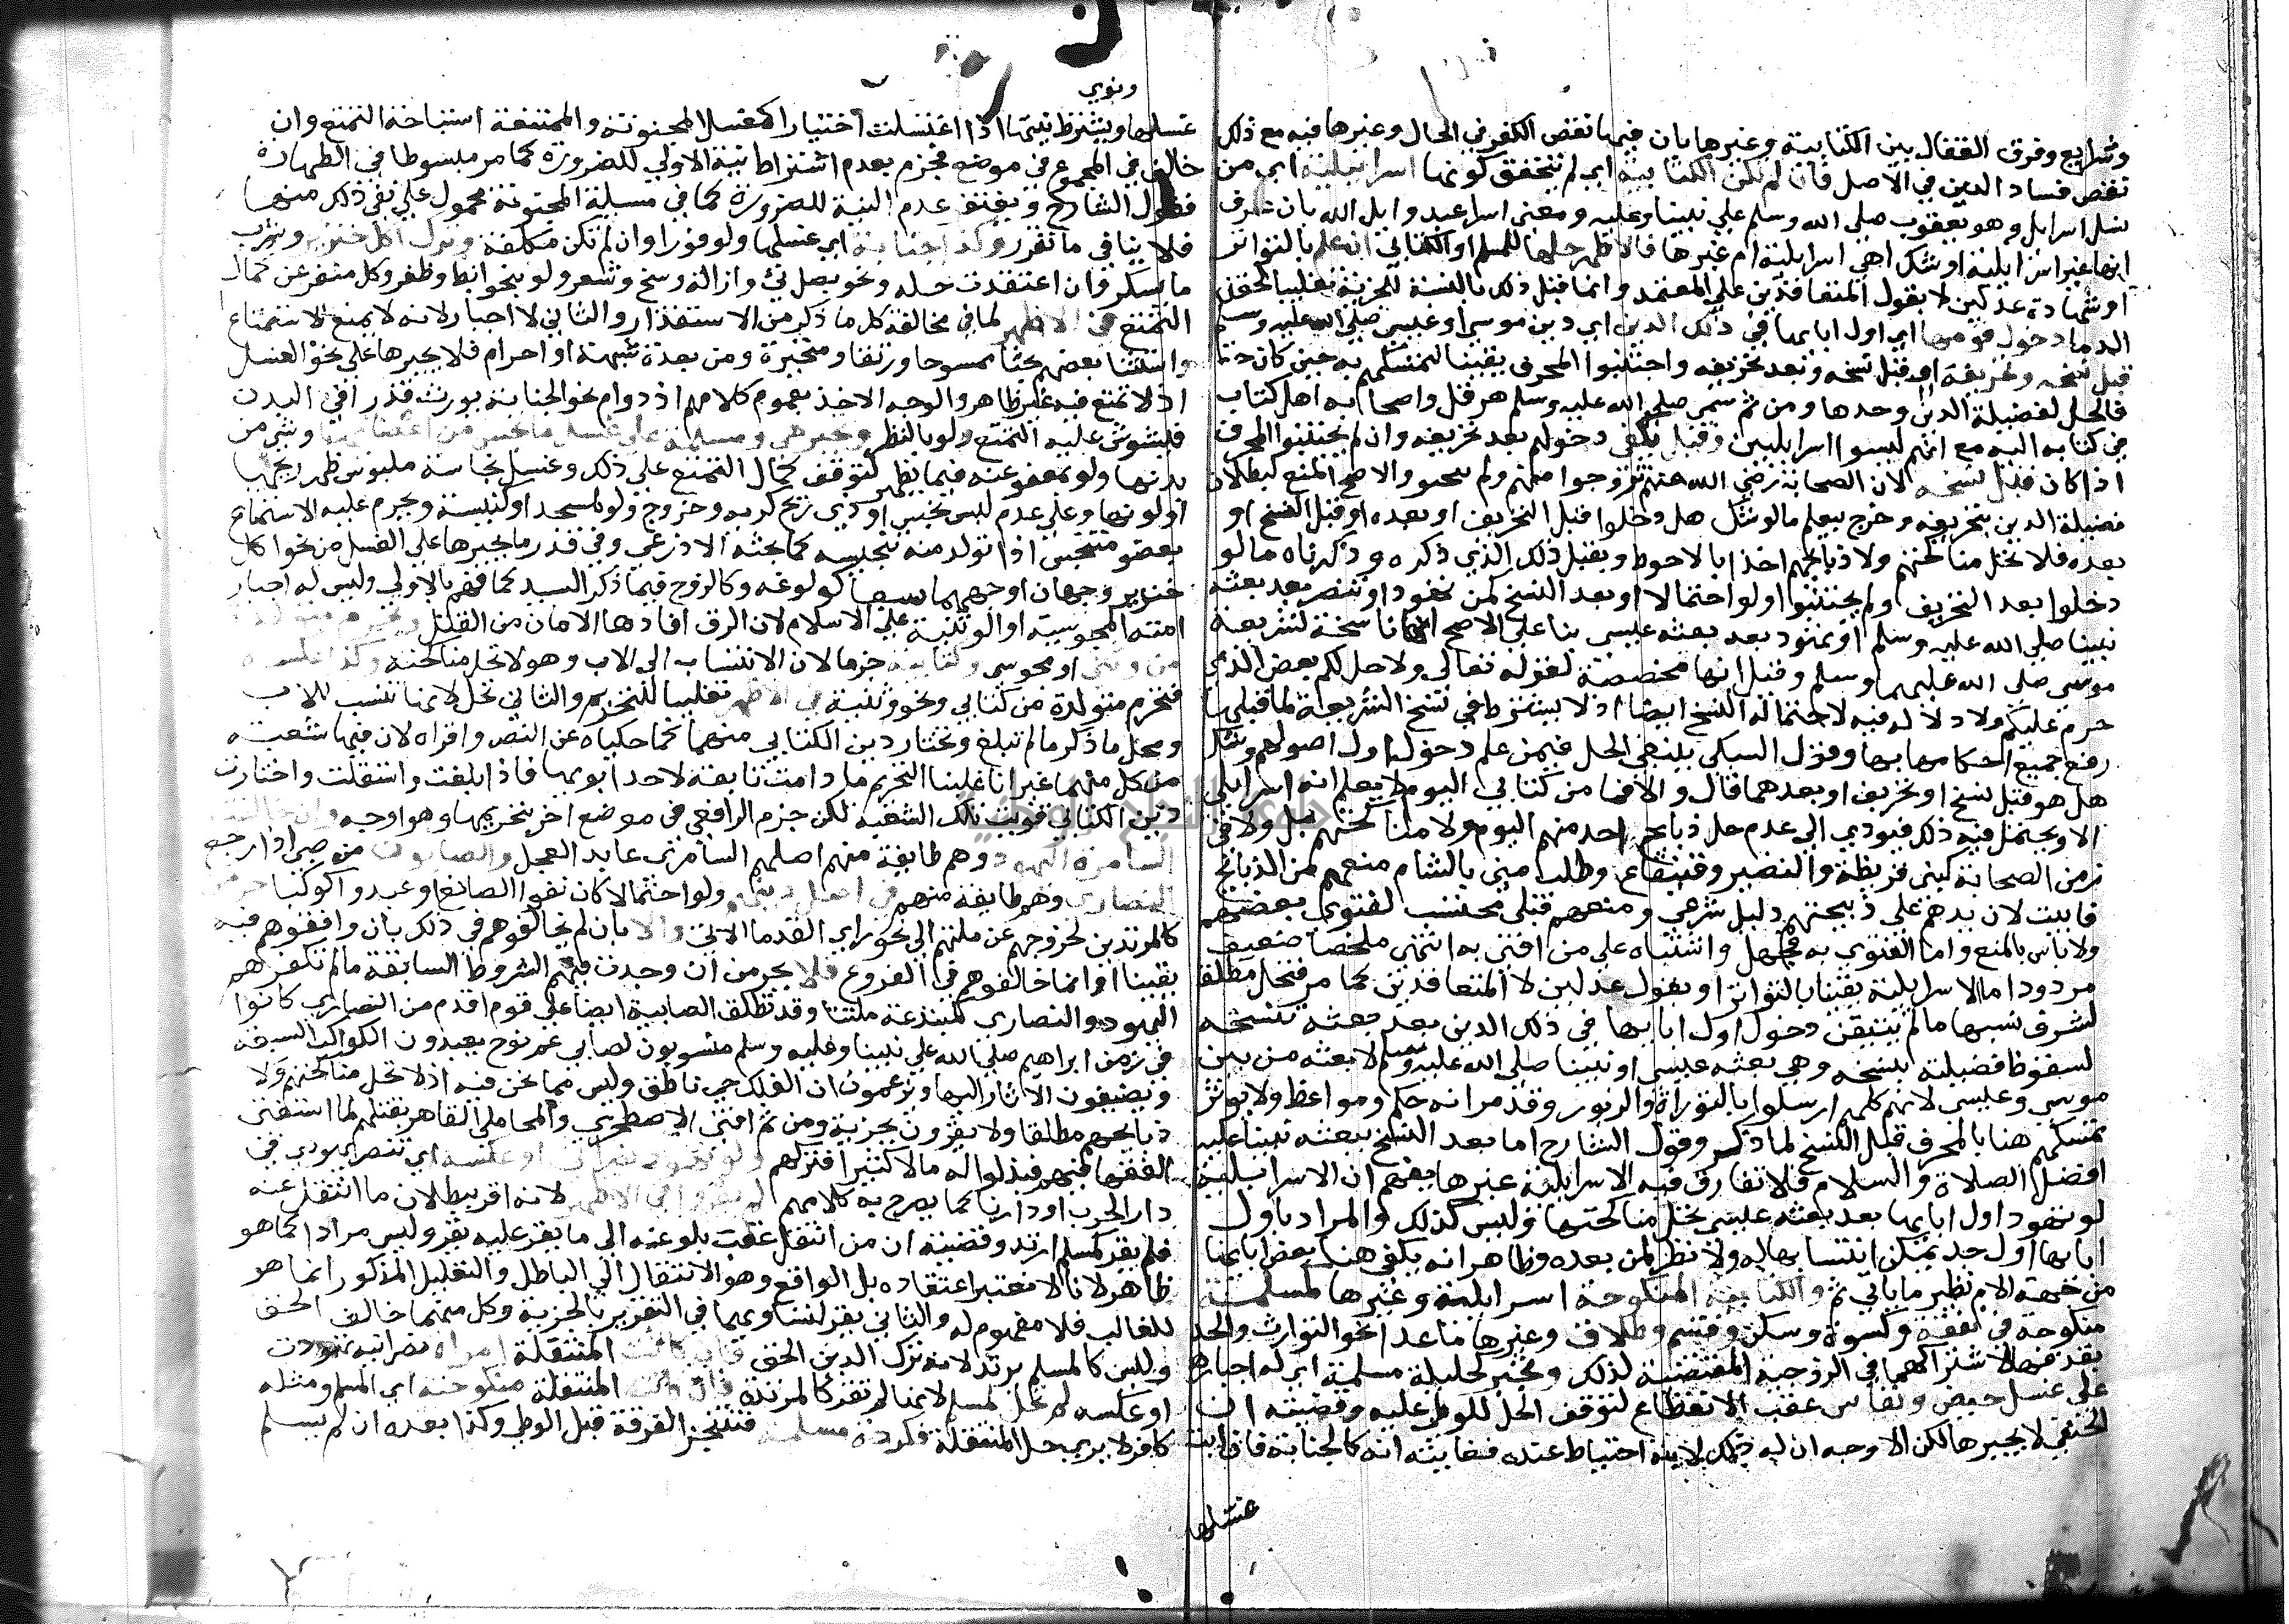 وشرايع وفرق القفال بين الكتابية وغيرها بان فيها نقص الكفر في الحال وغيرها فيه مع ذلك
نقص فساد الدين في الاصل فان لم تكن الكتابية اي لم يتحقق كونها اسرايلية اي من
نسل اسرايل وهو يعقوب صلى الله وسلم على نبينا وعليه ومعنى اسرا عبد وايل الله بان عرف
انها غير اسرايلية او شك اهي اسرايلية ام غيرها فالاظهر حلها للمسلم او الكتابي ان علم بالتواتر
او شهادة عدلين لا بقول المتعاقدين على المعتمد وانما قبل ذلك بالنسبة للجزية تغليبا لحقن
الدما دخول قومها اي اول ابايها في ذلك الدين اي دين موسى او عيسى صلى الله عليه وسلم
قبل نسخه وتحريفه او قبل نسخه وبعد تحريفه واجتنبوا المحرف يقينا لتمسكهم به حين كان حقا
فالحل لفضيلة الدين وحدها ومن ثم سمى صلى الله عليه وسلم هرقل واصحابه اهل كتاب
في كتابه اليه مع انهم ليسوا اسرايليين وقيل يكفي دخولهم بعد تحريفه وان لم يجتنبوا المحرف
اذا كان قبل نسخه لان الصحابة رضي الله عنهم تزوجوا منهم ولم يبحثوا والاصح المنع لبطلان
فضيلة الدين بتحريفه وخرج بيعلم ما لو شك هل دخلوا قبل التحريف او بعده او قبل النسخ او
بعده فلا تحل مناكحتهم ولا ذبايحهم اخذا بالاحوط وبقبل ذلك الذي ذكره وذكرناه ما لو
دخلوا بعد التحريف ولم يجتنبوا ولو احتمالا او بعد النسخ كمن تهود او تنصر بعد بعثة
نبينا صلى الله عليه وسلم او تهود بعد بعثة عيسى بنا على الاصح انها ناسخة لشريعة
موسى صلى الله عليهما وسلم وقيل انها مخصصة لقوله تعالى ولاحل لكم بعض الذي
حرم عليكم ولا دلالة فيه لاحتماله النسخ ايضا اذ لا يشترط في نسخ الشريعة لما قبلها
رفع جميع احكامها بها وقول السبكي ينبغي الحل فيمن علم دخول اول اصولهم وشك
هل هو قبل نسخ او تحريف او بعدهما قال والا فما من كتابي اليوم لا يعلم انه اسرايلي
الا ويحتمل فيه ذلك فيودي الى عدم حل ذبايح احد منهم اليوم ولا مناكحتهم بل ولا في
زمن الصحابة كبني قريظة والنضير وقينقاع وطلب مني بالشام منعهم من الذبايح
فابيت لان يدهم على ذبيحتهم دليل شرعي ومنعهم قبلي محتسب لفتوى بعضهم
ولا باس بالمنع واما الفتوى به فجهل واشتباه على من افتى به انتهى ملخصا ضعيف
مردود اما الاسرايلية يقينا بالتواتر او بقول عدلين لا المتعاقدين كما مر فتحل مطلقا
لشرف نسبها ما لم يتيقن دخول اول ابايها في ذلك الدين بعد بعثة تنسخه
لسقوط فضيلته بنسخه وهي بعثة عيسى او نبينا صلى الله عليه وسلم لا بعثة من بين
موسى وعيسى لانهم كلهم ارسلوا بالتوراة والزبور وقد مر انه حكم ومواعظ ولا يوثر
تمسكهم هنا بالمحرف قبل النسخ لما ذكر وقول الشارح اما بعد النسخ ببعثة نبينا عليه
افضل الصلاة والسلام فلا تفارق فيه الاسرايلية غيرها يفهم ان الاسرايلية
لو تهود اول ابايها بعد بعثة عيسى تحل مناكحتها وليس كذلك والمراد باول
ابايها اول جد يمكن انتسابها له ولا نظر لمن بعده وظاهر انه يكفي هنا بعض ابايها
من جهة الام نظير ما ياتي ثم والكتابية المنكوحة اسرايلية وغيرها لمسلمة
منكوحة في نفقة وكسوة وسكن وقسم وطلاق وغيرها ما عدا نحو التوارث والحد
بقذفها لاشتراكهما في الزوجية المقتضية لذلك وتجبر كحليلة مسلمة اي له اجبارها
على غسل حيض ونفاس عقب الانقطاع لتوقف الحل للوطي عليه وقضيته ان
الحنفي لا يجبرها لكن الاوجه ان له ذلك لانه احتياط عنده فغايته انه كالجنابة فان ابت
غسلها
ونوي
غسلها ويشترط نيتها اذا اغتسلت اختيارا كمغسل المجنونة والممتنعة استباحة التمتع وان
خالف في المجموع في موضع فجزم بعدم اشتراط نية الاولى للضرورة كما مر مبسوطا في الطهارة
فقول الشارح ويغتفر عدم النية للضرورة كما في مسلة المجنونة محمول على نفي ذلك منها
فلا ينافي ما تقرر وكذا جنابة اي غسلها ولو فورا وان لم تكن مكلفة وترك اكل خنزير وشرب
ما يسكر وان اعتقدت حله ونحو بصل ني وازالة وسخ وشعر ولو بنحو ابط وظفر وكل منفر عن كمال
التمتع في الاظهر لما في مخالفة كل ما ذكر من الاستقذار والثاني لا اجبار لانه لا يمنع الاستمتاع
واستثنا بعضهم بحثا ممسوحا ورتقا ومتحيرة ومن بعدة شبهة او احرام فلا يجبرها على نحو الغسل
اذ لا تمتع فيه غير ظاهر والوجه الاخذ بعموم كلامهم اذ دوام نحو الجنابة يورث قذرا في البدن
فليشوش عليه التمتع ولو بالنظر وتجبر هي ومسلمة على غسل ما نجس من اعضايها وشي من
بدنها ولو بمعفو عنه فيما يظهر لتوقف كمال التمتع على ذلك وغسل نجاسة ملبوس ظهر ريحها
او لونها وعلى عدم لبس نجس او ذي ريح كريه وخروج ولو لمسجد او كنيسة ويحرم عليه الاستمتاع
بعضو متنجس اذا تولد منه تنجيسه كما بحثه الاذرعي وفي قدر ما يجبرها على الغسل من نحو اكل
خنزير وجهان اوجههما سبعا كولوغه وكالزوج فيما ذكر السيد كما فهم بالاولى وليس له اجبار
امته المجوسية او الوثنية على الاسلام لان الرق افادها الامان من القتل وتحرم متولدة
من وثني او مجوسي وكتابية جزما لان الانتساب الى الاب وهو لا تحل مناكحته وكذا عكسه
فتحرم متولدة من كتابي ونحو وثنية في الاظهر تغليبا للتحريم والثاني تحل لانها تنسب للاب
ومحل ما ذكر ما لم تبلغ وتختار دين الكتابي منهما كما حكياه عن النص واقراه لان فيها شعبة
من كل منهما غير انا غلبنا التحريم ما دامت تابعة لاحد ابويها فاذا بلغت واستقلت واختارت
دين الكتابي قويت تلك الشعبة لكن جزم الرافعي في موضع اخر بتحريمها وهو اوجه وان خالفت
السامرة اليهود وهم طايفة منهم اصلهم السامري عابد العجل والصابيون من صبا اذا رجع
النصارى وهم طايفة منهم في اصل دينهم ولو احتمالا كان نفوا الصانع او عبدوا كوكبا حرمن
كالمرتدين لخروجهم عن ملتهم الى نحو راي القدما الاتي والا بان لم يخالفوهم في ذلك بان وافقوهم فيه
يقينا او انما خالفوهم في الفروع فلا يحرمن ان وجدت فيهم الشروط السابقة ما لم تكفرهم
اليهود والنصارى كمبتدعة ملتنا وقد تطلق الصابية ايضا على قوم اقدم من النصارى كانوا
في زمن ابراهيم صلى الله على نبينا وعليه وسلم منسوبون لصابي عم نوح يعبدون الكواكب السبعة
ويضيفون الاثار اليها ويزعمون ان الفلك حي ناطق وليس مما نحن فيه اذ لا تحل مناكحتهم ولا
ذبايحهم مطلقا ولا يقرون بجزية ومن ثم افتى الاصطخري والمحاملي القاهر بقتلهم لما استفتى
الفقها فيهم فبذلوا له مالا كثيرا فتركهم ولو تهود نصراني او عكسه اي تنصر يهودي في
دار الحرب او دارنا كما يصرح به كلامهم لم يقر في الاظهر لانه اقر ببطلان ما انتقل عنه
فلم يقر كمسلم ارتد وقضيته ان من انتقل عقب بلوغه الى ما يقر عليه يقر وليس مرادا كما هو
ظاهر لانا لا نعتبر اعتقاده بل الواقع وهو الانتقال الى الباطل والتعليل المذكور انما هو
للغالب فلا مفهوم له والثاني يقر لتساويهما في التقرير بالجزية وكل منهما خالف الحق
وليس كالمسلم يرتد لانه ترك الدين الحق فان كانت المنتقلة امراة نصرانية تهودت
او عكسه لم تحل لمسلم لانها لم تقر كالمرتدة فان كانت المنتقلة منكوحته اي المسلم ومثله
كافر لا يرى حل المنتقلة فكردة مسلمة فتتنجز الفرقة قبل الوطي وكذا بعده ان لم يسلم